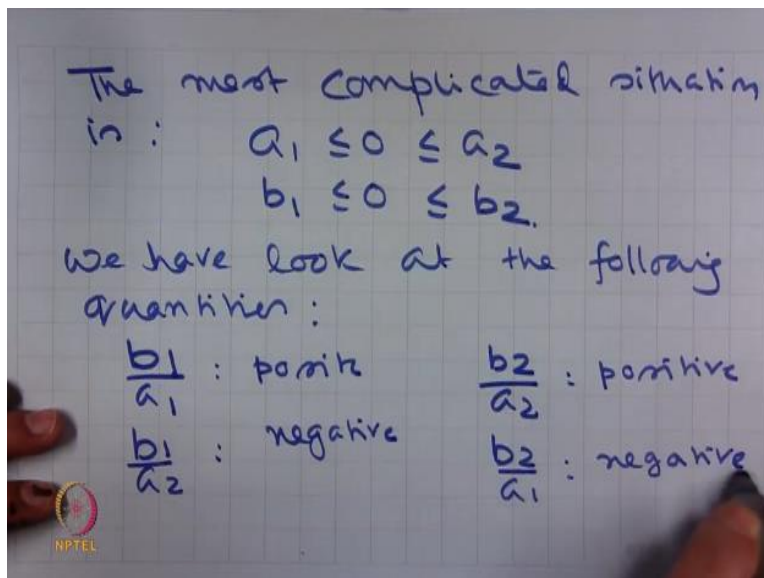 The most complicated situation
is :
a1 ≤ 0 ≤ a2
b1 ≤ 0 ≤ b2.
we have look at the following
quantities :
b1/a1 : positive b2/a2 : positive
b1/a2 : negative b2/a1 : negative
NPTEL